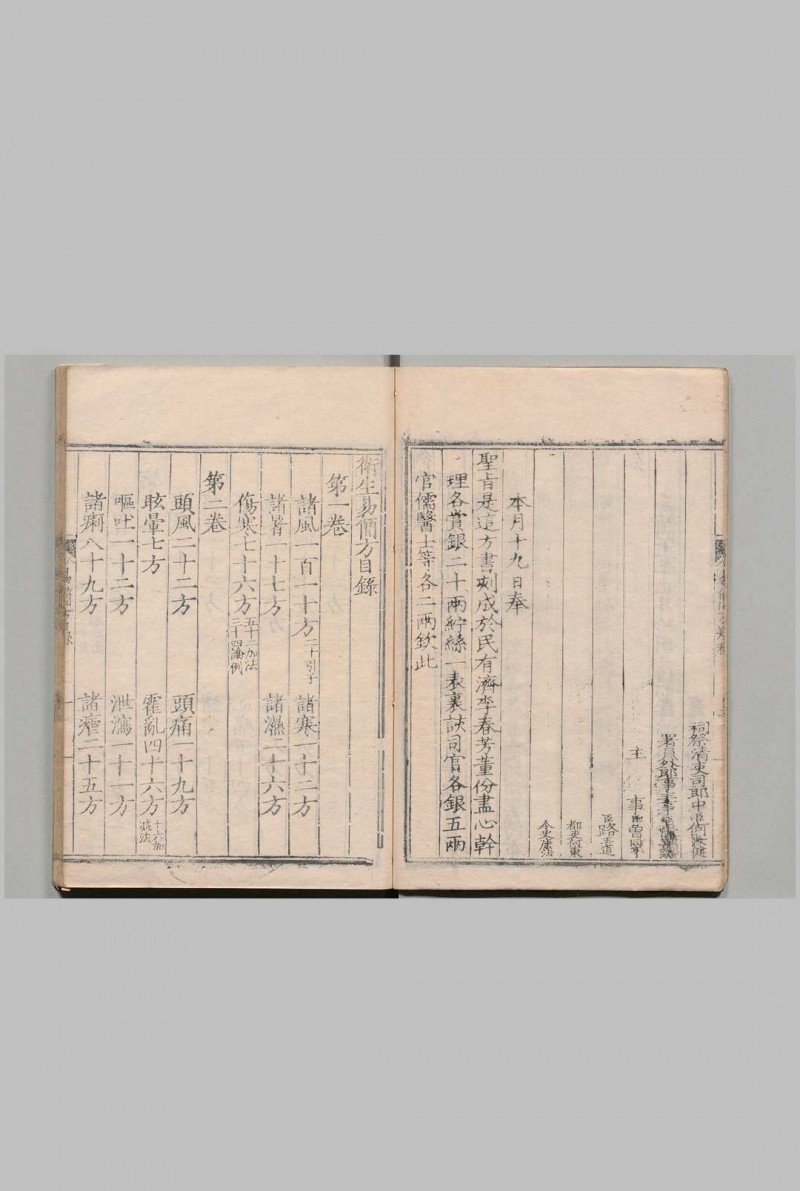 祠祭清吏司郎中臣何
署員外郎事主事臣
主事臣曾同亨
臣路王道
都吏何東
令史康沿
本月十九日奉
聖旨是這方書刻成於民有濟李春芳董份盡心幹
理各賞銀二十兩紵絲一表裏該司官各銀五兩
官儒醫士等各二兩欽此
衛生易簡方目錄
第一卷
諸風一百一十方二十引子 諸寒一十二方
諸暑一十七方 諸濕二十六方
傷寒七十六方五十二加法三十四論例
第二卷
頭風二十二方 頭痛一十九方
眩暈七方 霍亂四十六方十六加減法
嘔吐一十二方 泄瀉一十一方
諸痢八十九方 諸瘧二十五方
易簡方目錄